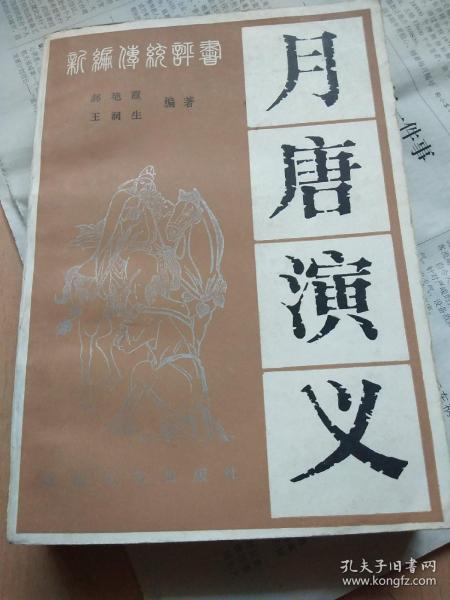 新編傳統評書
郝艳霞
王润生
编著
月唐演义
出版社
一件事
孔夫子旧书网
www.kongfz.com